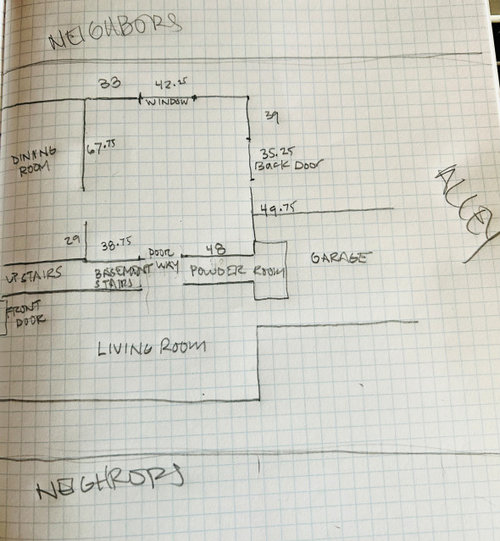 NEIGHBORS
33
42.25
WINDOW
39
67.75
DINING
ROOM
35.25
Back Door
ALLEY
49.75
29
38.75
DOOR
WAY
48
UPSTAIRS
BASEMENT
STAIRS
POWDER ROOM
GARAGE
FRONT
DOOR
LIVING ROOM
NEIGHBORS